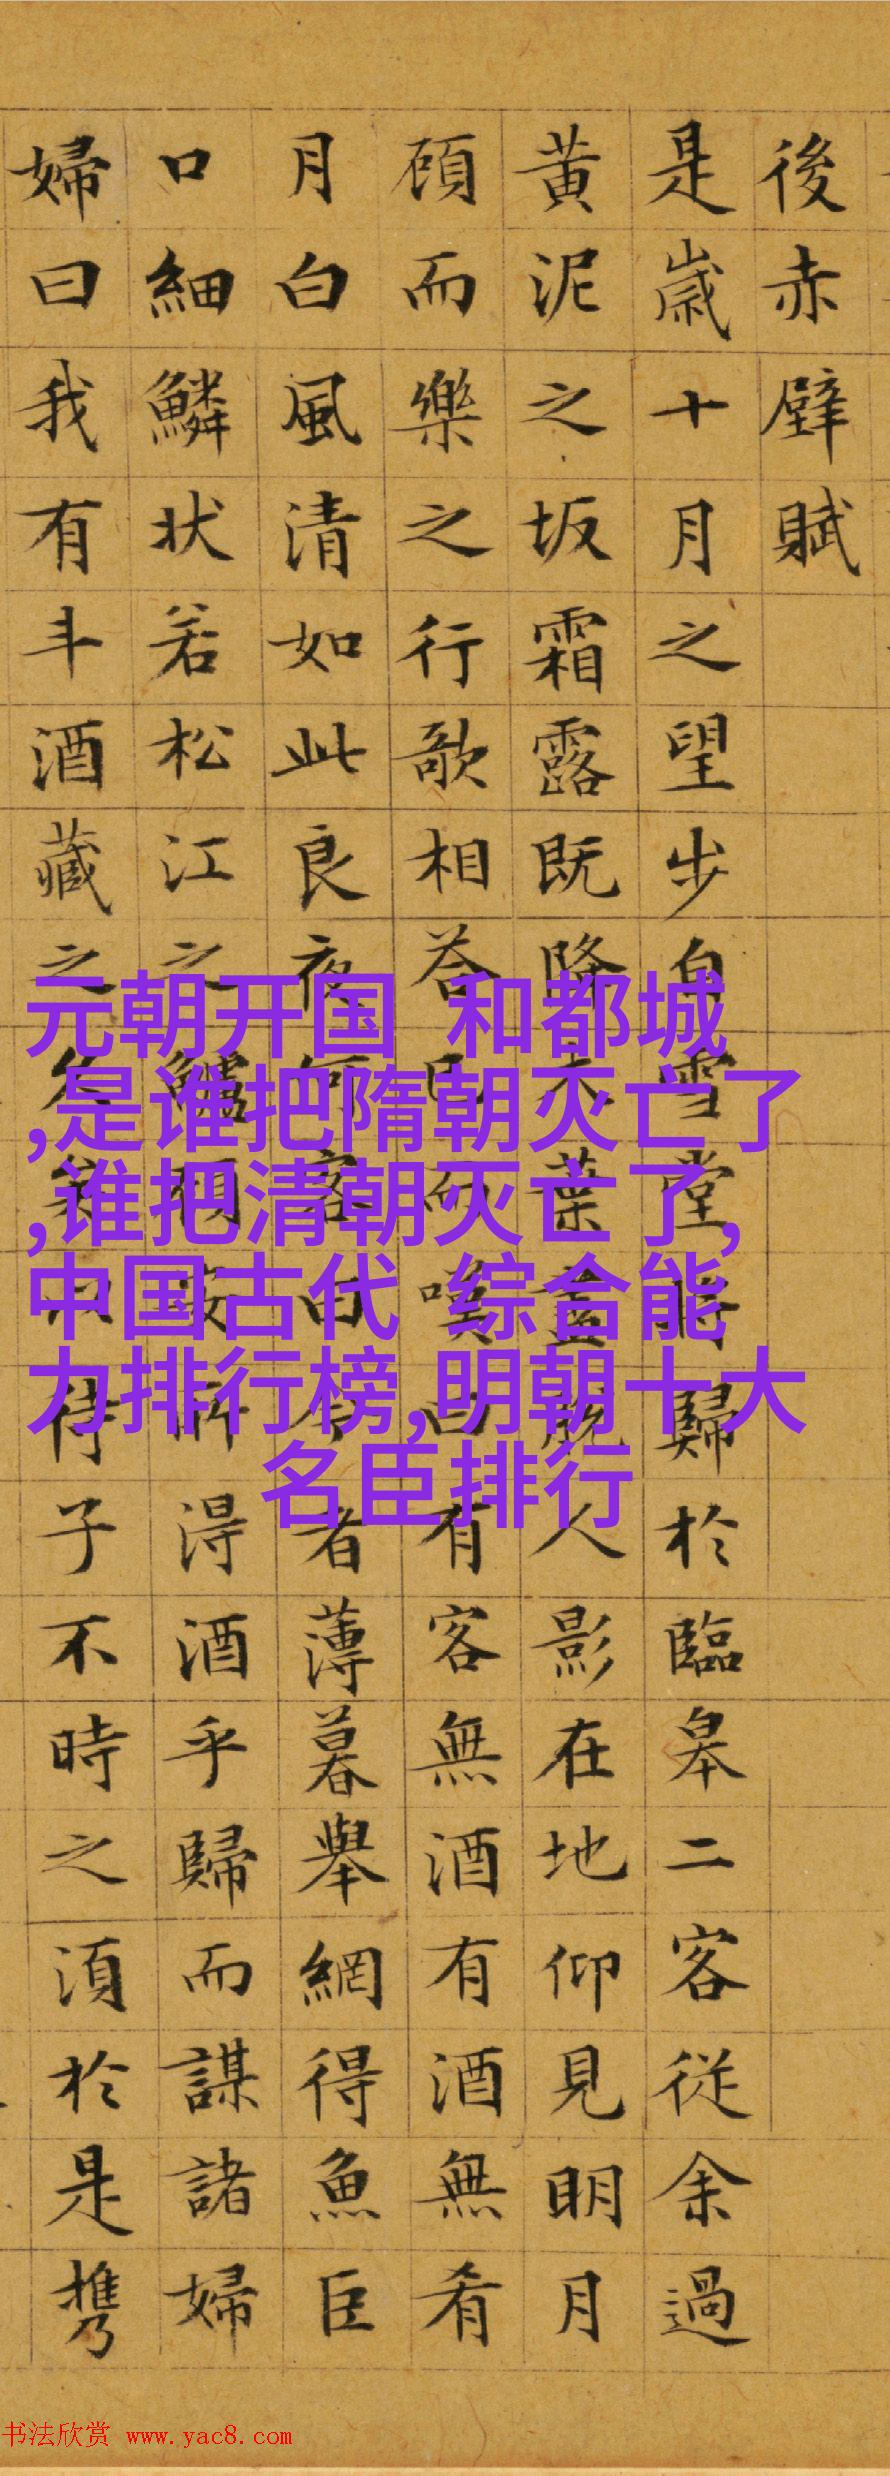 後赤壁賦
是歲十月之望步自雪堂將歸於臨皋二客從余過
黄泥之坂霜露既降木葉盡脫人影在地仰見明月
頋而樂之行歌相荅已而嘆曰有客無酒有酒無肴
月白風清如此良夜何客曰今者薄暮舉網得魚臣
口細鱗状若松江之鱸頋安所得酒乎歸而謀諸婦
婦曰我有斗酒藏之久矣以待子不時之須於是携
元朝开国 和都城
,是谁把隋朝灭亡了
,谁把清朝灭亡了,
中国古代 综合能
力排行榜,明朝十大
名臣排行
书法欣赏 www.yac8.com